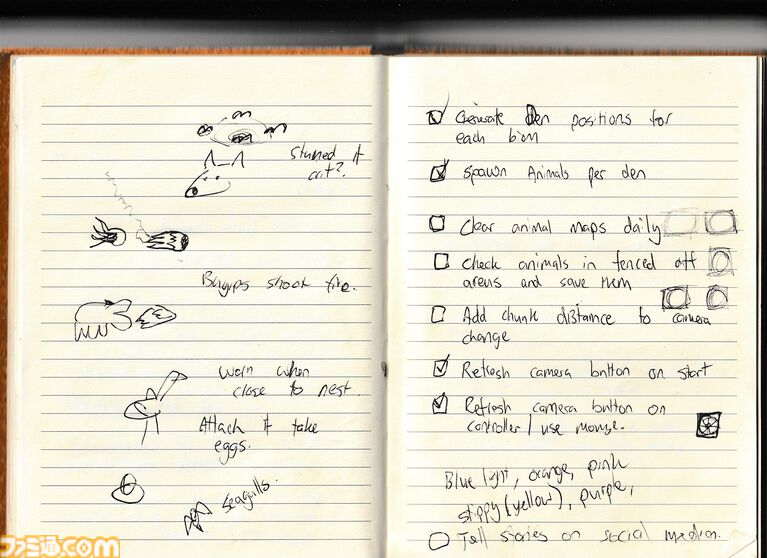 Stunned if
crit?
Bunyips shoot fire.
Warn when
close to nest.
Attack if take
eggs.
Seagulls.
Generate Den positions for
each biom
Spawn Animals per den
Clear animal maps daily
Check animals in fenced off
areas and save them
Add chunk distance to camera
change
Refresh camera button on start
Refresh camera button on
controller / use mouse.
Blue light, orange, pink
(yellow), purple,
Tell stories on social media.
ファミ通.com